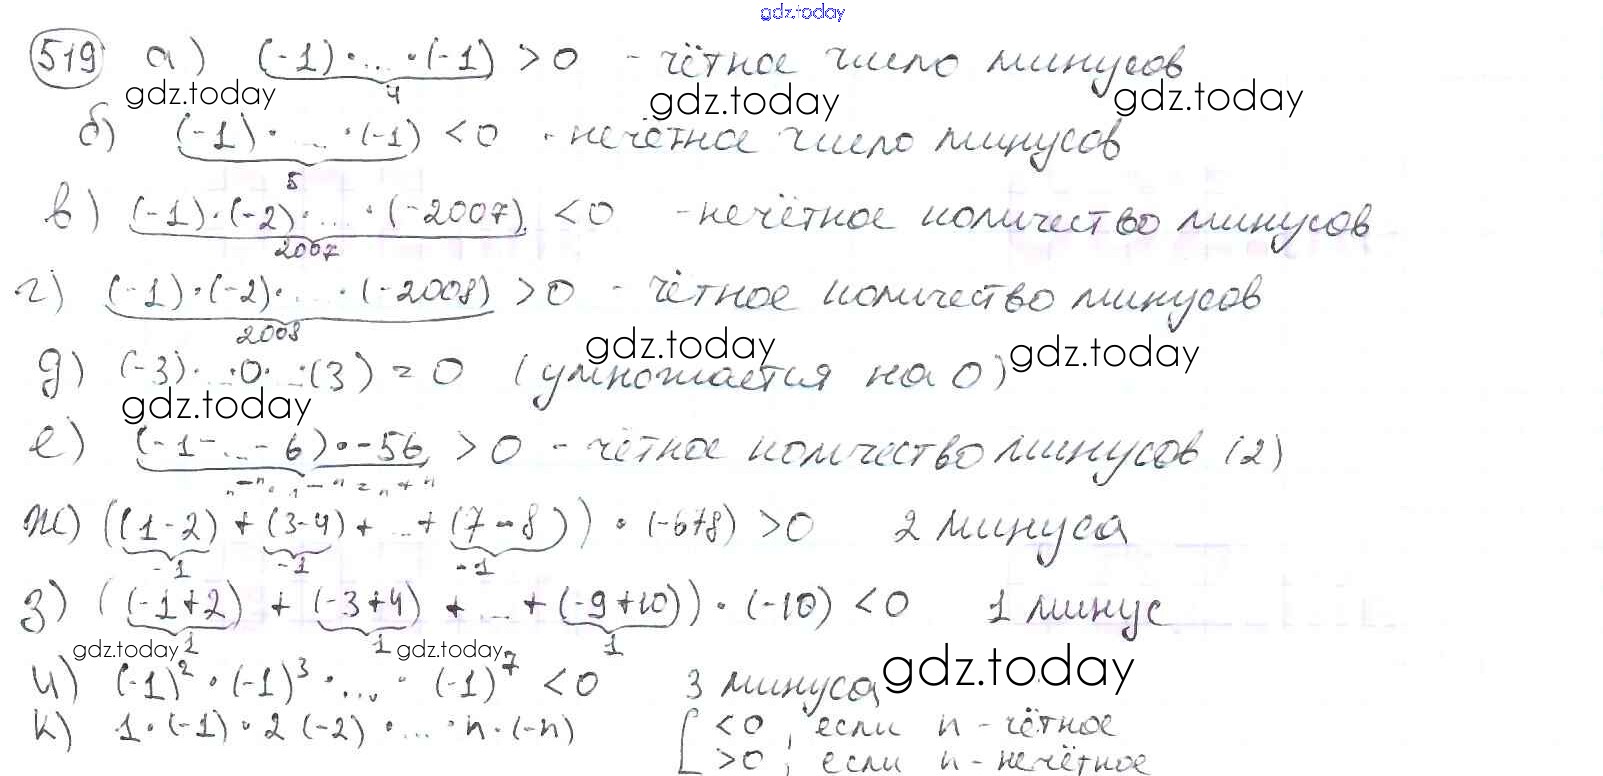 gdz.today
519 а) (-1)·...·(-1) > 0 - чётное число минусов
4
gdz.today gdz.today gdz.today
б) (-1)·...·(-1) < 0 - нечётное число минусов
5
в) (-1)·(-2)·...·(-2007) < 0 - нечётное количество минусов
2007
г) (-1)·(-2)·...·(-2008) > 0 - чётное количество минусов
2008
gdz.today gdz.today
д) (-3)·..·0·..·(3) = 0 (умножается на 0)
gdz.today
е) (-1-...-6)·-56 > 0 - чётное количество минусов (2)
"-"·"-"="+"
ж) ((1-2)+(3-4)+...+(7-8))·(-678) > 0 2 минуса
-1 -1 -1
з) ((-1+2)+(-3+4)+...+(-9+10))·(-10) < 0 1 минус
1 1 1
gdz.today gdz.today gdz.today
и) (-1)²·(-1)³·...·(-1)⁷ < 0 3 минуса
к) 1·(-1)·2(-2)·...·n·(-n) [ < 0, если n - чётное
> 0, если n - нечётное